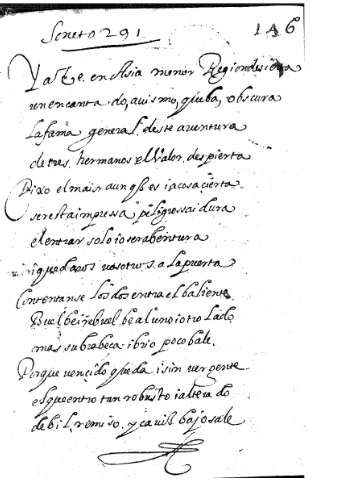 Soneto 291
146
Yaze en Asia menor Region desierta
un encanta do, auismo, q̃ueba, obscura
la fama general deste auentura
de tres hermanos el valor despierta
Dixo el mais aunq̃ es ia cosa çierta
ser esta impressa peligrossa i dura
el entrar solo io sera bentura
i quedaos vosotros a la puerta
Contentanse los dos entra el baliente
Buelbe i rebuelbe al uno i otro lado
mas su cabeça i brio poco bale
Porque vencido q̃ueda i sin vergente
el que entro tan robusto i alterado
debil, remiso, y cauisbajo sale